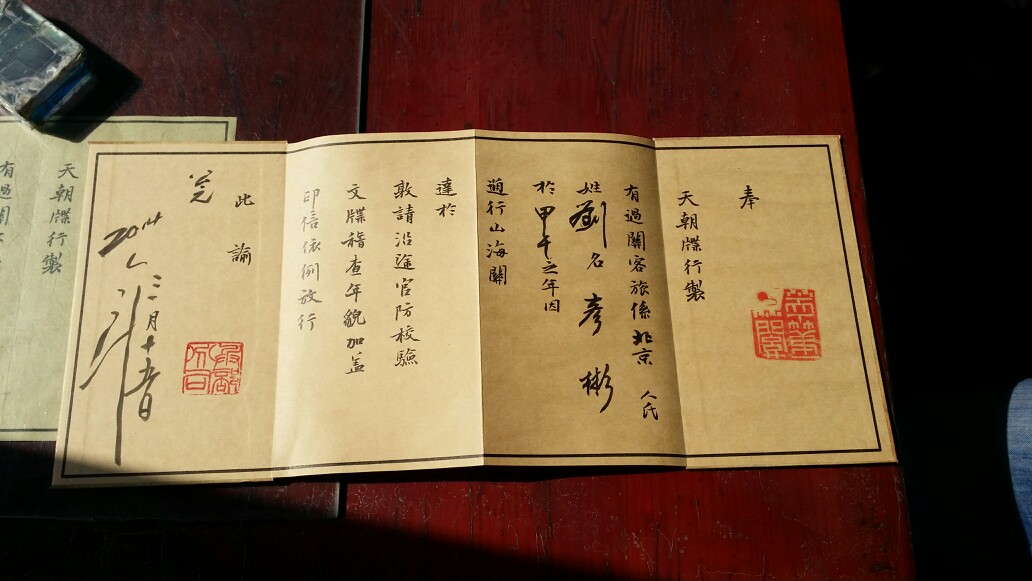 奉
天朝牒行製
有過關客旅係北京人氏
姓劉名彥彬
於甲午之年因
通行山海關
達於
敦請沿途官防校驗
文牒稽查年貌加盖
印信依例放行
此諭
二月十五日
天朝牒行製
有過關